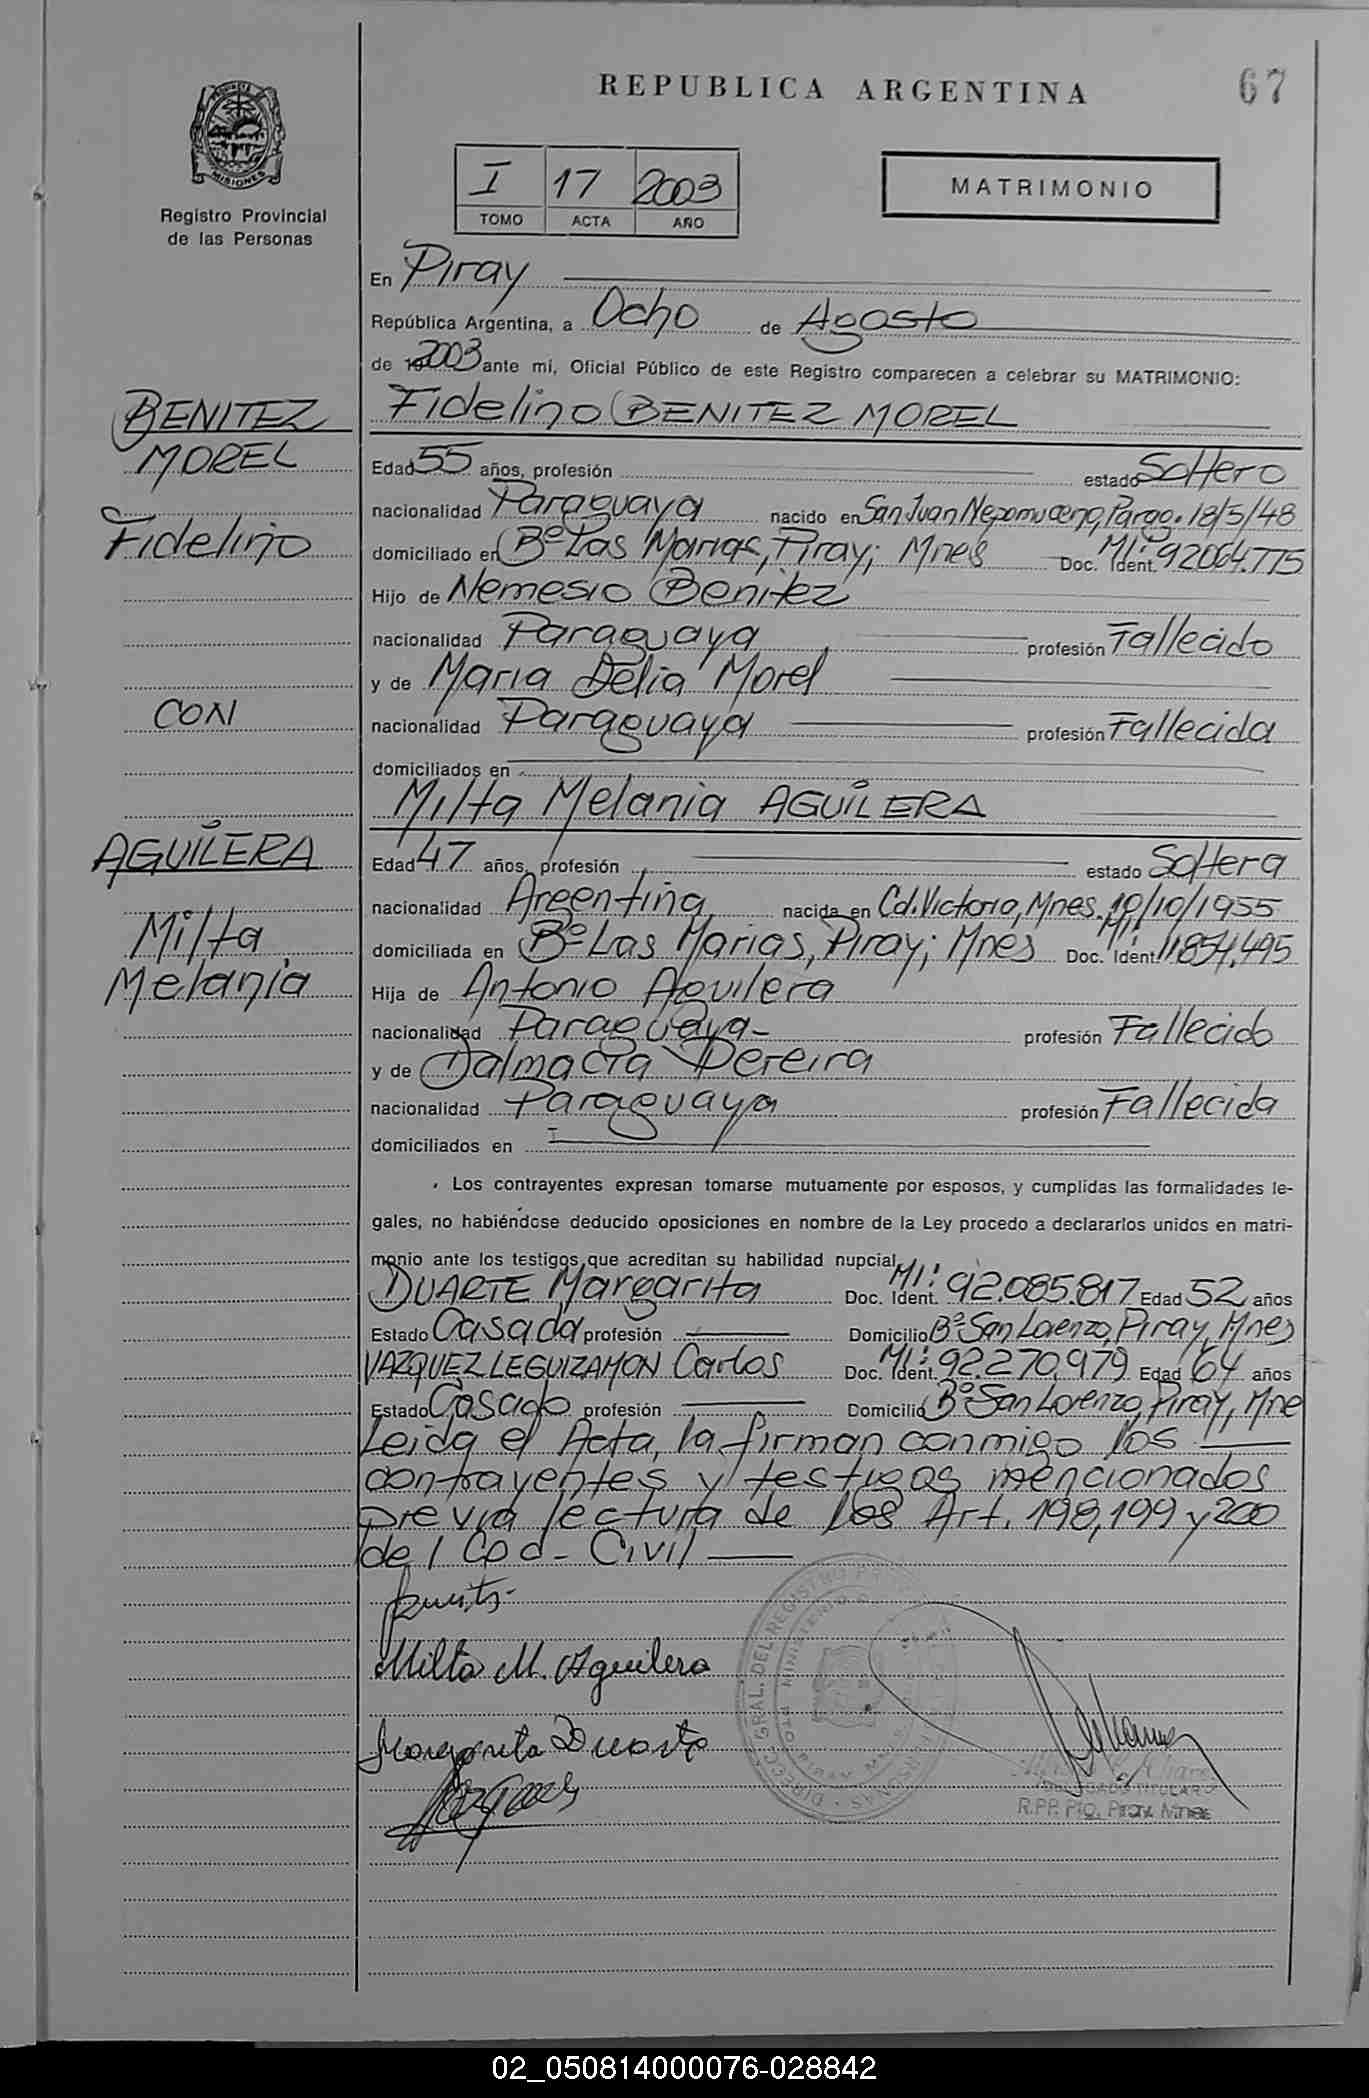 REPUBLICA ARGENTINA
67
MISIONES
Registro Provincial
de las Personas
I 17 2003
TOMO ACTA AÑO
MATRIMONIO
En Piray
República Argentina, a Ocho de Agosto
de 2003 ante mi, Oficial Público de este Registro comparecen a celebrar su MATRIMONIO:
BENITEZ
MOREL
Fidelino
CON
AGUILERA
Milta
Melania
Fidelino BENITEZ MOREL
Edad 55 años, profesión estado Soltero
nacionalidad Paraguaya nacido en San Juan Nepomuceno, Pargo. 18/5/48
domiciliado en Bº Las Marias, Piray; Mnes Doc. Ident. MI: 92064.775
Hijo de Nemesio Benitez
nacionalidad Paraguaya profesión Fallecido
y de Maria Delia Morel
nacionalidad Paraguaya profesión Fallecida
domiciliados en
Milta Melania AGUILERA
Edad 47 años, profesión estado Soltera
nacionalidad Argentina nacida en Cd. Victoria, Mnes. 10/10/1955
domiciliada en Bº Las Marias, Piray; Mnes Doc. Ident. MI: 11854.495
Hija de Antonio Aguilera
nacionalidad Paraguaya- profesión Fallecido
y de Dalmacia Pereira
nacionalidad Paraguaya profesión Fallecida
domiciliados en
Los contrayentes expresan tomarse mutuamente por esposos, y cumplidas las formalidades le-
gales, no habiéndose deducido oposiciones en nombre de la Ley procedo a declararlos unidos en matri-
monio ante los testigos que acreditan su habilidad nupcial
DUARTE Margarita Doc. Ident. MI: 92.085.817 Edad 52 años
Estado Casada profesión Domicilio Bº San Lorenzo, Piray, Mnes
VAZQUEZ LEGUIZAMON Carlos Doc. Ident. MI: 92.270.979 Edad 64 años
Estado Casado profesión Domicilio Bº San Lorenzo, Piray, Mne
Leida el Acta, la firman conmigo los
contrayentes y testigos mencionados
previa lectura de los Art. 198, 199 y 200
del Cod- Civil
Milta M. Aguilera
Margarita Duarte
DIRECC. GRAL. DEL REGISTRO PERSONAS
TITULAR
R.P.P. Pto. Piray Mnes
02_050814000076-028842